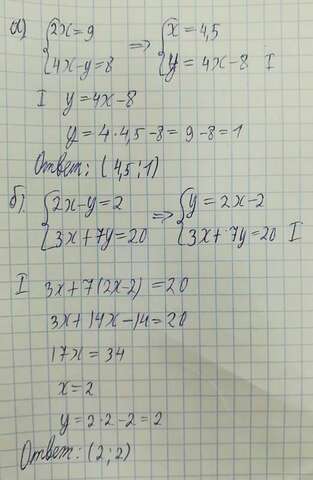 а) { 2x=9 => { x=4,5
4x-y=8 y=4x-8 I
I y=4x-8
y=4·4,5-8=9-8=1
Ответ: (4,5;1)
б) { 2x-y=2 => { y=2x-2
3x+7y=20 3x+7y=20 I
I 3x+7(2x-2)=20
3x+14x-14=20
17x=34
x=2
y=2·2-2=2
Ответ: (2;2)